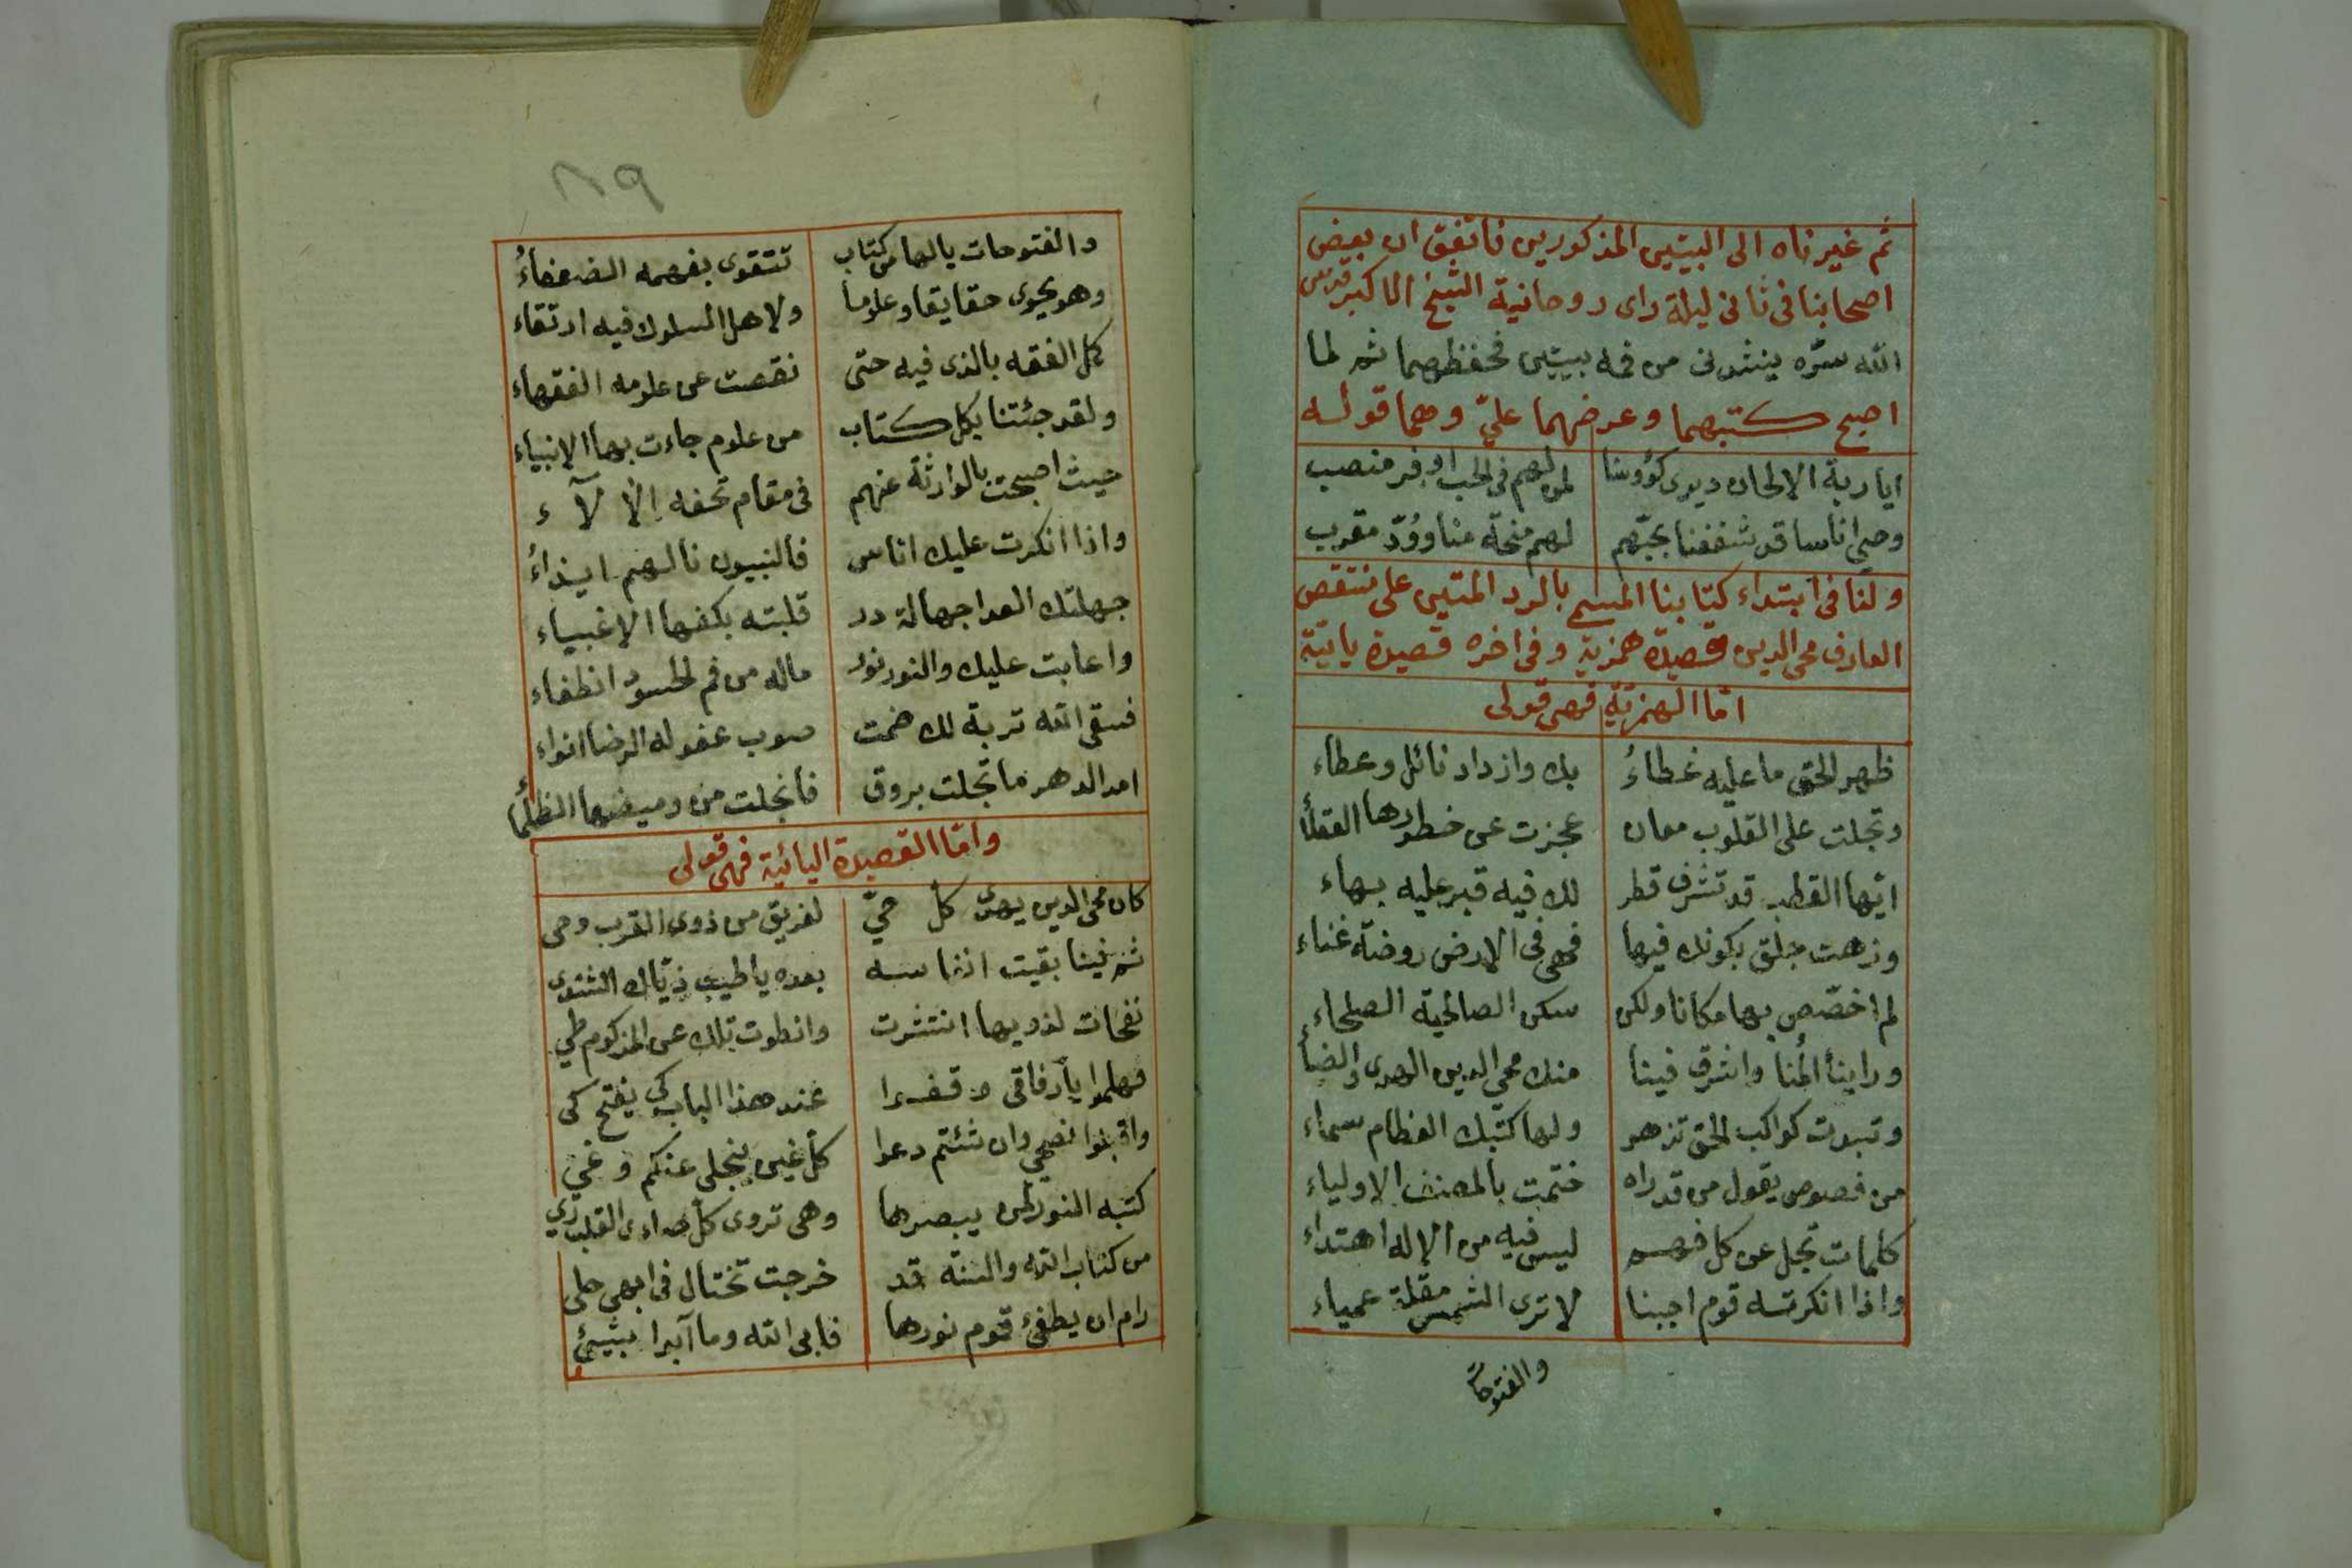 ثم غيرناه الى البيتين المذكورين فاتفق ان بعض
اصحابنا في ثاني ليلة راى روحانية الشيخ الاكبر قدس
الله سرّه ينشدني من فمه بيتين فحفظهما ثم لما
اصبح كتبهما وعرضهما عليّ وهما قوله
ايا ربة الالحان ديرى كؤوسنا لمن لهم في الحب اوفر منصب
وحيى اناسا قد شغفنا بحبّهم لهم منحة منا ووُدّ مقرب
ولنا في ابتداء كتابنا المسمى بالرد المتين على منتقص
العارف محي الدين قصيدة همزية وفي اخره قصيدة يائية
امّا الهمزيّة فهي قولى
ظهر الحق ما عليه غطاءُ بك وازداد نائل وعطاء
وتجلت على القلوب معان عجزت عن خطورها العقلأ
ايّها القطب قد تشرف قطر لك فيه قبر عليه بهاء
وزهت جلق بكونك فيها فهي في الارض روضة غناء
لم اخصّص بها مكانا ولكن سكن الصالحية الصلحاء
وراينا المُنا واشرق فينا منك محي الدين الهدى والضيأ
وتبدت كواكب الحق تزهو ولها كتبك العظام سماء
من فصوص يقول من قد راه ختمت بالمصنف الاولياء
كلمات تجل عن كل فهم ليس فيه من الاله اهتداء
واذا انكرته قوم اجبنا لا ترى الشمس مقلة عمياء
والفتوحات
٨٩
والفتوحات يالها من كتاب تتقوى بفهمه الضعفاءُ
وهو يحوى حقايقا وعلوما ولاهل السلوك فيه ارتقاء
كل الفقه بالذى فيه حتى نقصت عن علومه الفقهاء
ولقد جئتنا بكل كتاب من علوم جاءت بها الانبياء
حيث اصبحت بالوارثة عنهم في مقام تحفه الآلآء
واذا انكرت عليك اناس فالنبيون نالهم ايذاءُ
جهلتك العدا جهالة در قلبته بكفها الاغبياء
واعابت عليك والنور نور ماله من فم الحسود انطفاء
فسقى الله تربة لك ضمت صوب عفو له الرضا انواء
امد الدهر ما تجلت بروق فانجلت من وميضها الظلمأ
وامّا القصيدة اليائية فهي قولى
كان محي الدين يهدى كل حيّ لفريق من ذوى القرب وحى
ثم فينا بقيت انفاسه بعده يا طيب ذيّاك الشذى
نفحات لذويها انتشرت وانطوت تلك عن المزكوم طي
فهلموا يا رفاقي وقفوا عند هذا الباب كى يفتح كى
واقبلوا نصحي وان شئتم دعوا كل غين ينجلى عنكم وغي
كتبه النور لمن يبصرها وهي تروى كل صداءى القلب ري
من كتاب الله والسنة قد خرجت تختال في ابهى حلى
رام ان يطفئ قوم نورها فابى الله وما آبدا بشيئ